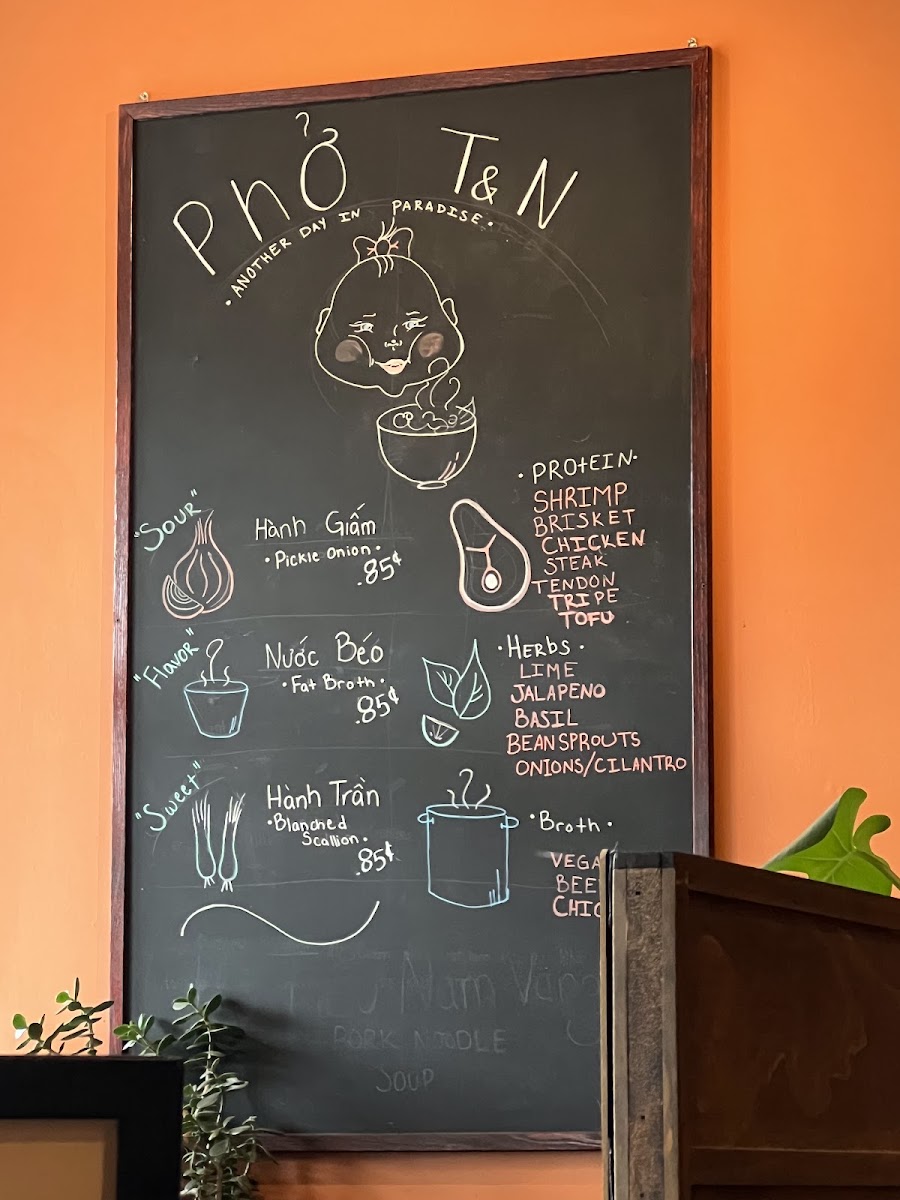 Phở T&N
• ANOTHER DAY IN PARADISE •
"SOUR"
Hành Giấm
• Pickle Onion •
.85¢
"Flavor"
Nước Béo
• Fat Broth •
.85¢
"Sweet"
Hành Trần
• Blanched
Scallion •
.85¢
• PROtEIN •
SHRIMP
BRISKET
CHICKEN
STEAK
TENDON
TRIPE
TOFU
• HERBS •
LIME
JALAPENO
BASIL
BEANSPROUTS
ONIONS/CILANTRO
• Broth •
VEGA
BEE
CHIC
Nam Vang
PORK NOODLE
SOUP